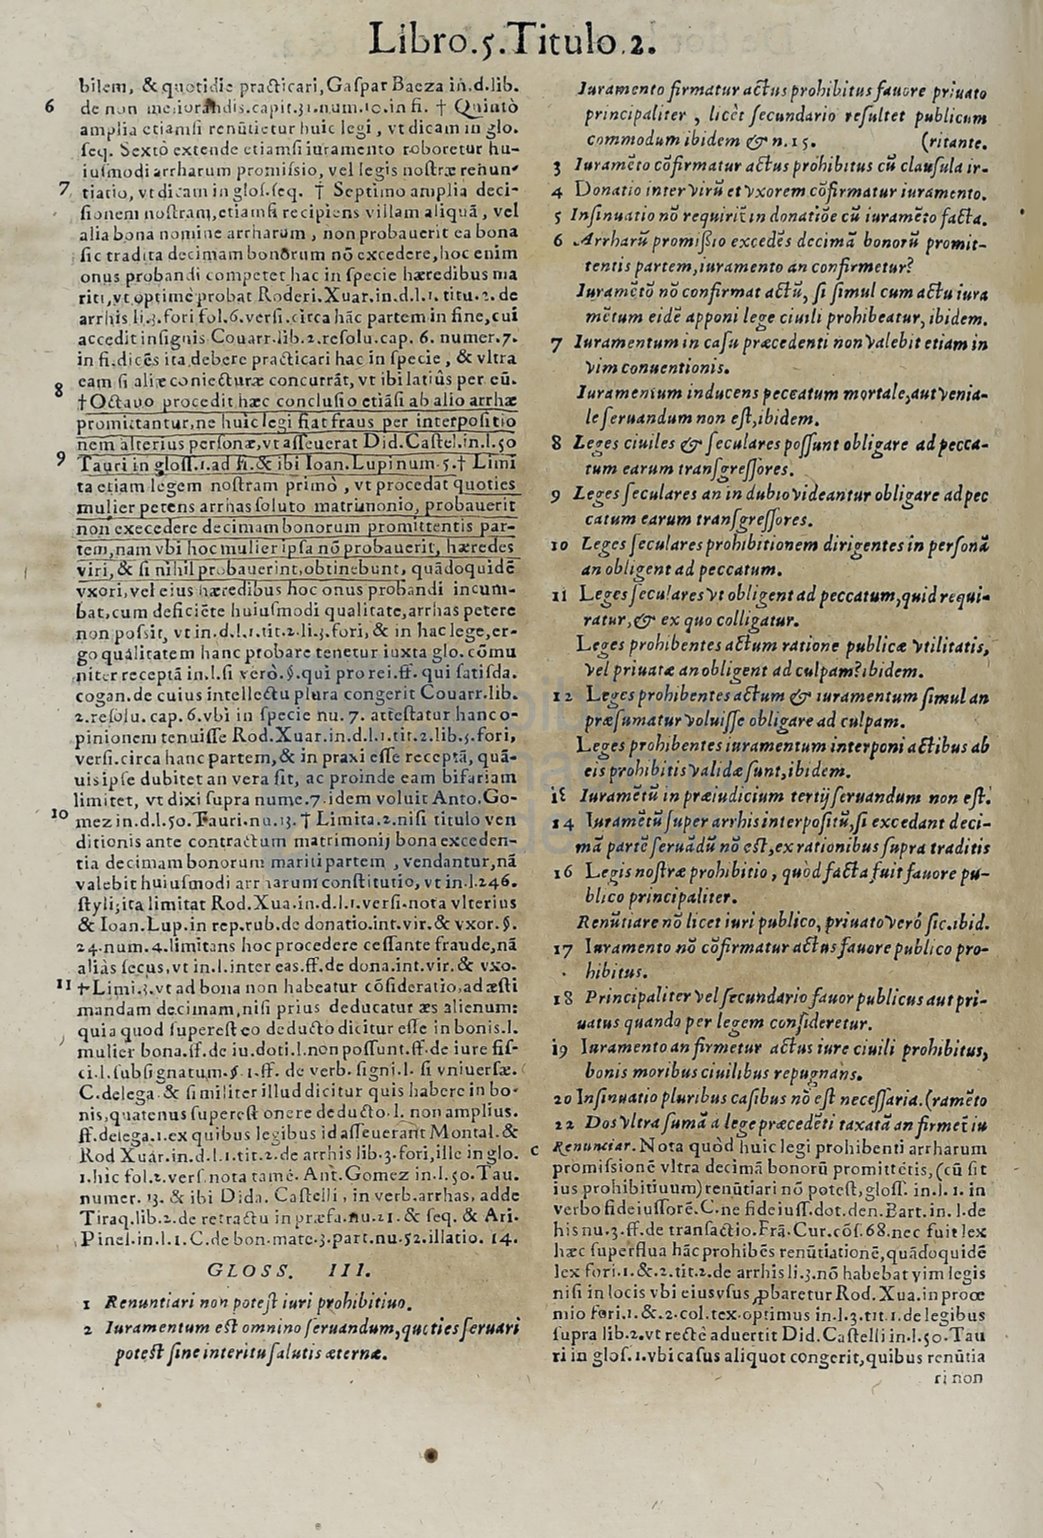 Libro.5.Titulo.2.
bilem, & quotidie practicari, Gaspar Baeza in.d.lib.
6 de non meiorandis.capit.31.num.10.in fi. † Quintò
amplia etiamsi renūtietur huic legi, vt dicam in glo.
seq. Sextò extende etiamsi iuramento roboretur hu-
iusmodi arrharum promissio, vel legis nostræ renun-
7 tiatio, vt dicam in glos.seq. † Septimo amplia deci-
sionem nostram, etiamsi recipiens villam aliquā, vel
alia bona nomine arrharum, non probauerit ea bona
sic tradita decimam bonorum nō excedere, hoc enim
onus probandi competet hac in specie hæredibus ma
riti, vt optimè probat Roderi.Xuar.in.d.l.1. titu.2. de
arrhis li.3.fori fol.6.versi.circa hāc partem in fine, cui
accedit insignis Couarr.lib.2.resolu.cap. 6. numer.7.
in fi.dicēs ita debere practicari hac in specie, & vltra
eam si aliæ coniecturæ concurrāt, vt ibi latiùs per eū.
8 †Octauo procedit hæc conclusio etiāsi ab alio arrhæ
promittantur, ne huic legi fiat fraus per interpositio
nem alterius personæ, vt asseuerat Did.Castel.in.l.50
9 Tauri in gloss.1.ad fi.& ibi Ioan.Lupi num.5.† Limi
ta etiam legem nostram primò, vt procedat quoties
mulier petens arrhas soluto matrimonio, probauerit
non execedere decimam bonorum promittentis par-
tem, nam vbi hoc mulier ipsa nō probauerit, hæredes
viri, & si nihil probauerint, obtinebunt, quādoquidē
vxori, vel eius hæredibus hoc onus probandi incum-
bat, cum deficiēte huiusmodi qualitate, arrhas petere
non possit, vt in.d.l.1.tit.2.li.3.fori, & in hac lege, er-
go qualitatem hanc probare tenetur iuxta glo. cōmu
niter receptā in.l.si verò.§.qui pro rei.ff. qui satisda.
cogan.de cuius intellectu plura congerit Couarr.lib.
2.resolu. cap. 6.vbi in specie nu. 7. attestatur hanc o-
pinionem tenuisse Rod.Xuar.in.d.l.1.tit.2.lib.5.fori,
versi.circa hanc partem, & in praxi esse receptā, quā-
uis ipse dubitet an vera sit, ac proinde eam bifariam
limitet, vt dixi supra nume.7.idem voluit Anto.Go-
10 mez in.d.l.50.Tauri.nu.13.† Limita.2.nisi titulo ven
ditionis ante contractum matrimonij bona exceden-
tia decimam bonorum mariti partem, vendantur, nā
valebit huiusmodi arrharum constitutio, vt in.l.246.
styli; ita limitat Rod.Xua.in.d.l.1.versi.nota vlterius
& Ioan.Lup.in rep.rub.de donatio.int.vir.& vxor.§.
24.num.4.limitans hoc procedere cessante fraude, nā
aliàs secus, vt in.l.inter eas.ff.de dona.int.vir.& vxo.
11 †Limi.3.vt ad bona non habeatur cōsideratio, ad æsti
mandam decimam, nisi prius deducatur æs alienum:
quia quod superest eo deducto dicitur esse in bonis.l.
mulier bona.ff.de iu.doti.l.non possunt.ff.de iure fis-
ci.l.subsignatum.§.1.ff. de verb. signi.l. si vniuersæ.
C.delega.& similiter illud dicitur quis habere in bo-
nis, quatenus superest onere deducto.l. non amplius.
ff.delega.1.ex quibus legibus id asseuerant Montal.&
Rod Xuar.in.d.l.1.tit.2.de arrhis lib.3.fori, ille in glo.
1.hic fol.2.vers.nota tamē. Ant.Gomez in.l.50.Tau.
numer.13. & ibi Dida. Castelli, in verb.arrhas, adde
Tiraq.lib.2.de retractu in præfa.nu.21.& seq. & Ari.
Pinel.in.l.1.C.de bon.mate.3.part.nu.52.illatio. 14.
GLOSS. III.
1 Renuntiari non potest iuri prohibitiuo.
2 Iuramentum est omnino seruandum, quoties seruari
potest sine interitu salutis æternæ.
Iuramento firmatur actus prohibitus fauore priuato
principaliter, licèt secundario resultet publicum
commodum ibidem & n.15. (ritante.
3 Iuramēto cōfirmatur actus prohibitus cū clausula ir-
4 Donatio inter virū et vxorem cōfirmatur iuramento.
5 Insinuatio nō requirit̄ in donatiōe cū iuramēto facta.
6 Arrharū promissio excedēs decimā bonorū promit-
tentis partem, iuramento an confirmetur?
Iuramētū nō confirmat actū, si simul cum actu iura
mētum eidē apponi lege ciuili prohibeatur, ibidem.
7 Iuramentum in casu præcedenti non valebit etiam in
vim conuentionis.
Iuramentum inducens peccatum mortale, aut venia-
le seruandum non est, ibidem.
8 Leges ciuiles & seculares possunt obligare ad pecca-
tum earum transgressores.
9 Leges seculares an in dubio videantur obligare ad pec
catum earum transgressores.
10 Leges seculares prohibitionem dirigentes in personā
an obligent ad peccatum.
11 Leges seculares vt obligent ad peccatum, quid requi-
ratur, & ex quo colligatur.
Leges prohibentes actum ratione publicæ vtilitatis,
vel priuatæ an obligent ad culpam? ibidem.
12 Leges prohibentes actum & iuramentum simul an
præsumatur voluisse obligare ad culpam.
Leges prohibentes iuramentum interponi actibus ab
eis prohibitis validæ sunt, ibidem.
Iuramētū in præiudicium tertij seruandum non est.
14 Iuramētū super arrhis interpositū, si excedant deci-
mā partē seruādū nō est, ex rationibus supra traditis
16 Legis nostræ prohibitio, quòd facta fuit fauore pu-
blico principaliter.
Renūtiare nō licet iuri publico, priuato verò sic.ibid.
17 Iuramento nō cōfirmatur actus fauore publico pro-
hibitus.
18 Principaliter vel secundario fauor publicus aut pri-
uatus quando per legem consideretur.
19 Iuramento an firmetur actus iure ciuili prohibitus,
bonis moribus ciuilibus repugnans.
20 Insinuatio pluribus casibus nō est necessaria. (ramēto
22 Dos vltra sumā a lege præcedēti taxatā an firmet̄ iu
c Renunciar. Nota quòd huic legi prohibenti arrharum
promissionē vltra decimā bonorū promittētis, (cū sit
ius prohibitiuum) renūtiari nō potest, gloss. in.l. 1. in
verbo fideiussorē.C.ne fideiuss.dot.den.Bart.in. l.de
his nu.3.ff.de transactio.Frā.Cur.cōs.68.nec fuit lex
hæc superflua hāc prohibēs renūtiationē, quādoquidē
lex fori.1.&.2.tit.2.de arrhis li.3.nō habebat vim legis
nisi in locis vbi eius vsus ꝓbaretur Rod.Xua.in proœ
mio fori.1.&.2.col.tex.optimus in.l.3.tit.1.de legibus
supra lib.2.vt rectè aduertit Did.Castelli in.l.50.Tau
ri in glos.1.vbi casus aliquot congerit, quibus renūtia
ri non